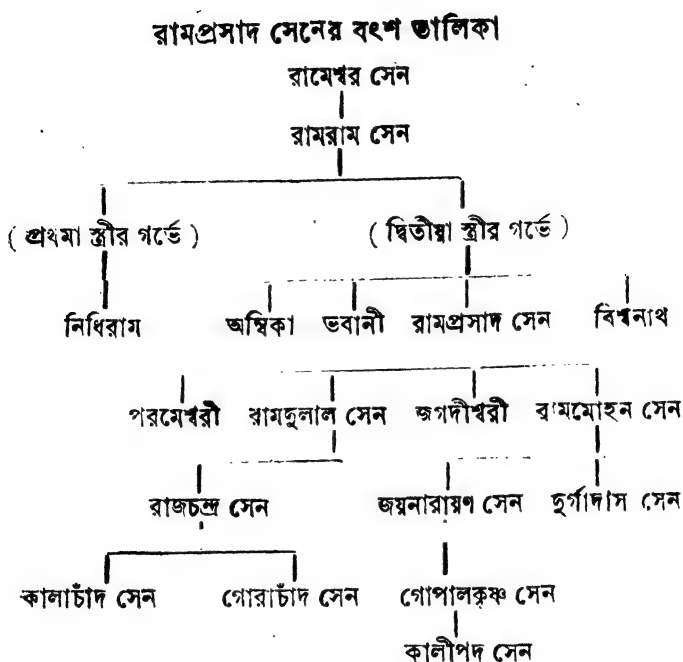 রামপ্রসাদ সেনের বংশ তালিকা
রামেশ্বর সেন
রামরাম সেন
( প্রথমা স্ত্রীর গর্ভে ) ( দ্বিতীয়া স্ত্রীর গর্ভে )
নিধিরাম অম্বিকা ভবানী রামপ্রসাদ সেন বিশ্বনাথ
পরমেশ্বরী রামদুলাল সেন জগদীশ্বরী রামমোহন সেন
রাজচন্দ্র সেন জয়নারায়ণ সেন দুর্গাদাস সেন
কালাচাঁদ সেন গোরাচাঁদ সেন গোপালকৃষ্ণ সেন
কালীপদ সেন